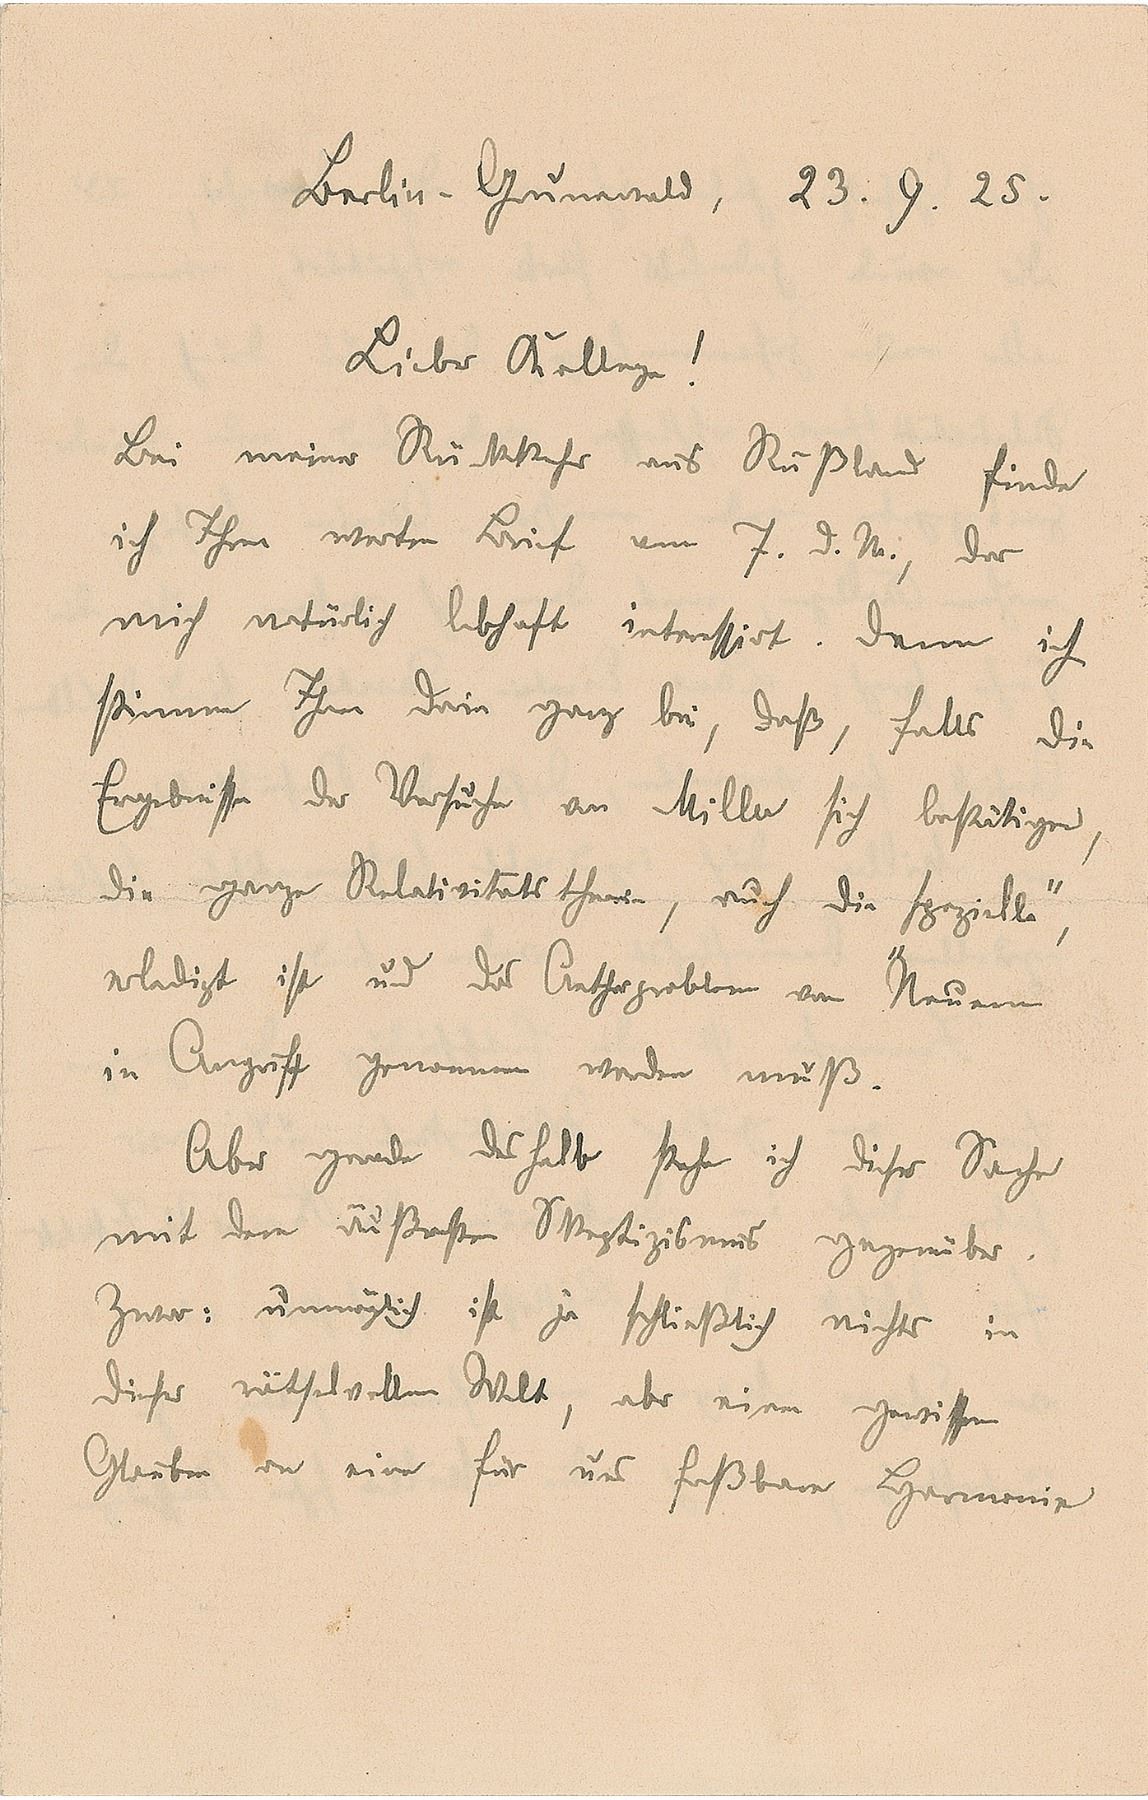 Berlin-Grunewald, 23. 9. 25.
Lieber Kollege!
Bei meiner Rückkehr aus Rußland finde
ich Ihren werten Brief vom 7. d. M., der
mich natürlich lebhaft interessirt. Denn ich
stimme Ihnen darin ganz bei, daß, falls die
Ergebnisse der Versuche von Miller sich bestätigen,
die ganze Relativitätstheorie, auch die „spezielle",
erledigt ist und das Aetherproblem von Neuem
in Angriff genommen werden muß.
Aber gerade deshalb stehe ich dieser Sache
mit dem äußersten Skeptizismus gegenüber.
Zwar: unmöglich ist ja schließlich nichts in
dieser rätselvollen Welt, aber einen gewissen
Glauben an eine für uns faßbare Harmonie